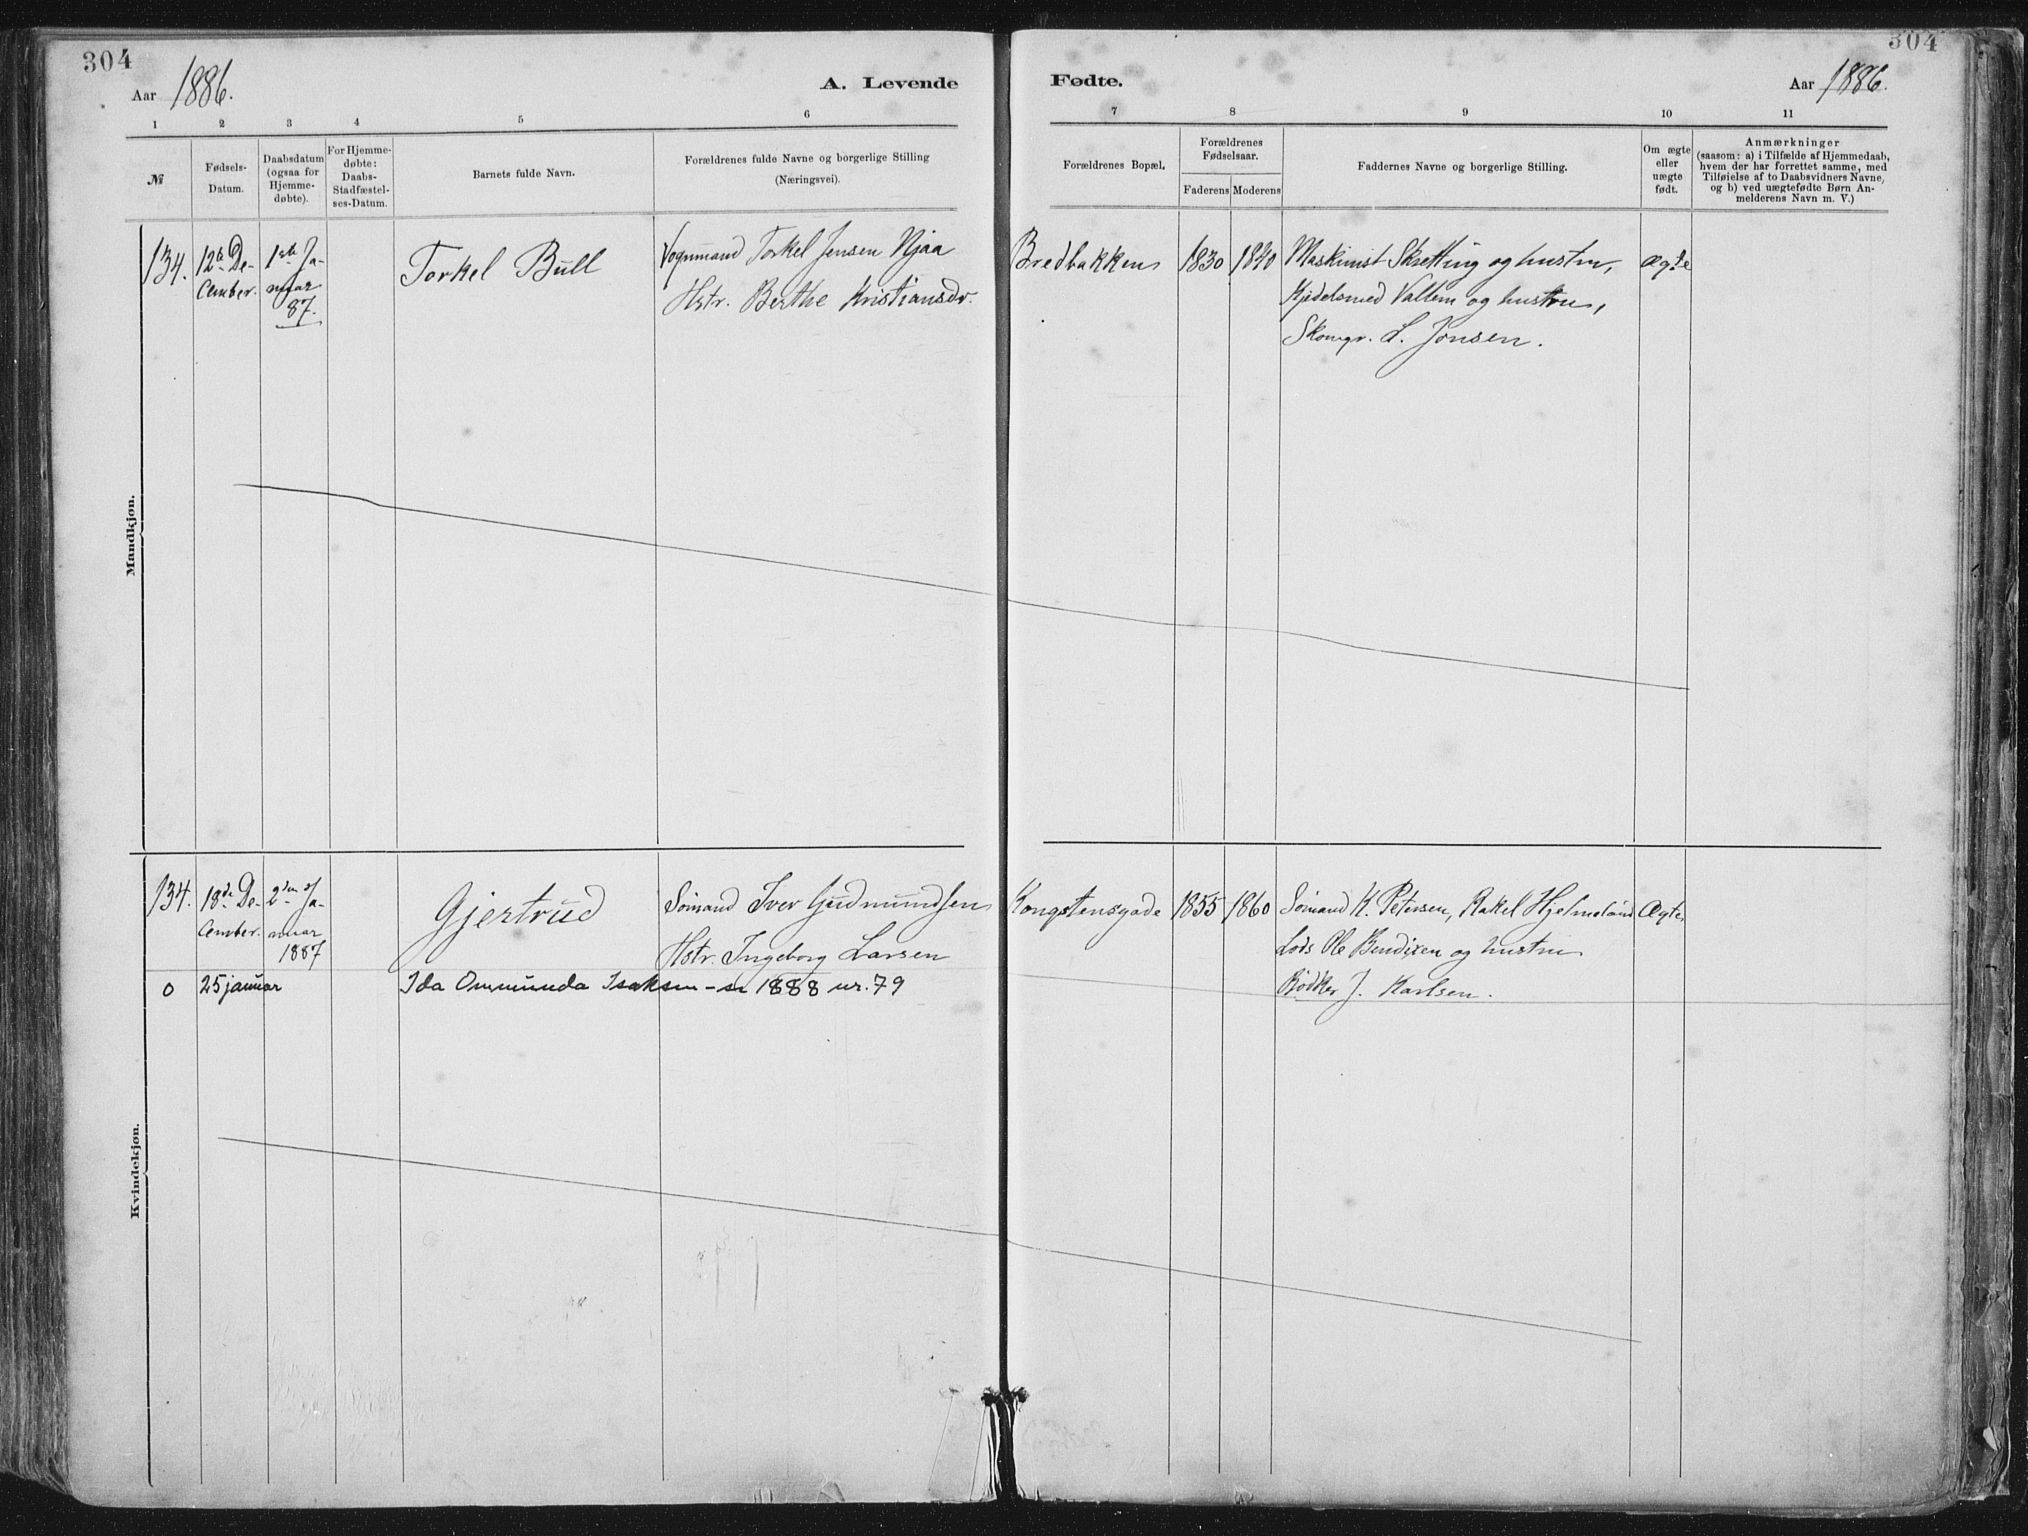 304
304
Aar 1886.
A. Levende
Fødte.
Aar 1886.
1 2 3 4 5 6 7 8 9 10 11
№
Fødsels-
Datum.
Daabsdatum
(ogsaa for
Hjemme-
døbte).
For Hjemme-
døbte:
Daabs-
Stadfæstel-
ses-Datum.
Barnets fulde Navn.
Forældrenes fulde Navne og borgerlige Stilling
(Næringsvei).
Forældrenes Bopæl.
Forældrenes
Fødselsaar.
Faderens Moderens
Faddernes Navne og borgerlige Stilling.
Om ægte
eller
uægte
født.
Anmærkninger
(saasom: a) i Tilfælde af Hjemmedaab,
hvem der har forrettet samme, med
Tilføielse af to Daabsvidners Navne,
og b) ved uægtefødte Børn An-
melderens Navn m. V.)
Mandkjøn.
134.
12te De-
cember.
1ste Ja-
nuar
87.
Torkel Bull
Vognmand Torkel Jensen Njaa
Hstr. Berthe Kristiansdr.
Bredbakken
1830
1840
Maskinist Skretting og hustru,
Kjedelsmed Vallem og hustru,
Skomgr. L. Jonsen.
Ægte
Kvindekjøn.
134.
18de De-
cember.
2den Ja-
nuar
1887
Gjertrud
Sømand Iver Gudmundsen
Hstr. Ingeborg Larsen
Kongstensgade
1855
1860
Sømand K. Petersen, Rakel Hjelmeland
Lods Ole Bendixen og hustru
Bødker J. Karlsen.
Ægte
0 25 januar Ida Ommunda Isaksen - se 1888 nr. 79